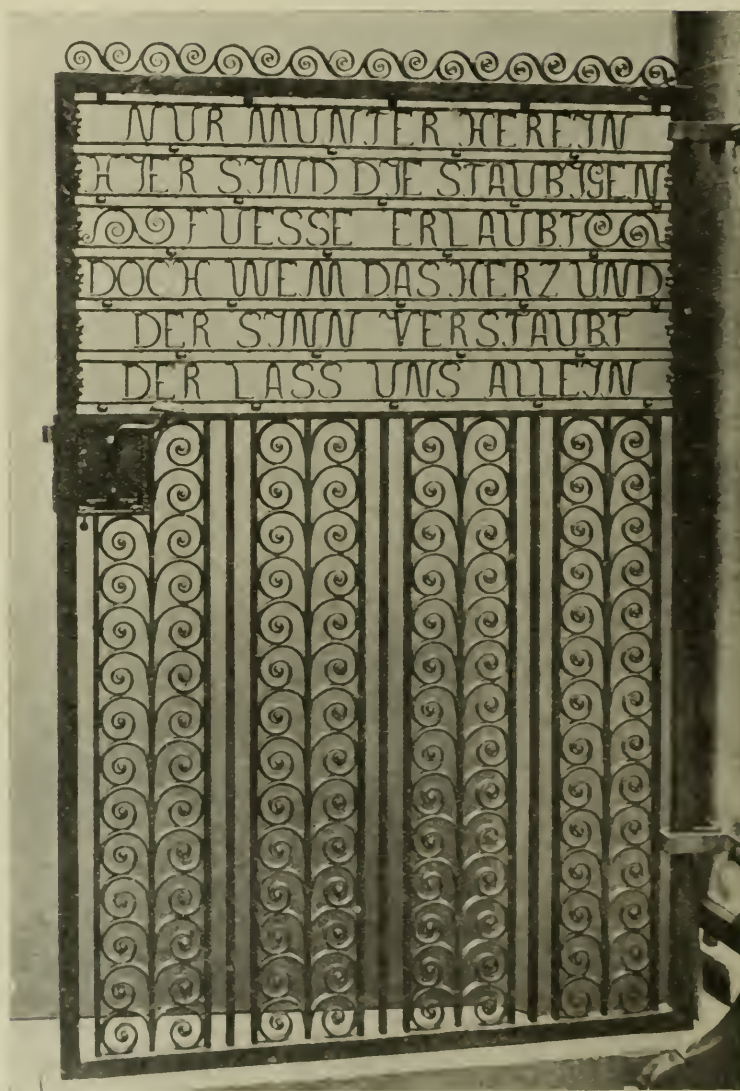 NUR MUNTER HEREIN
HIER SIND DIE STAUBIGEN
FUESSE ERLAUBT
DOCH WEM DAS HERZ UND
DER SINN VERSTAUBT
DER LASS UNS ALLEIN